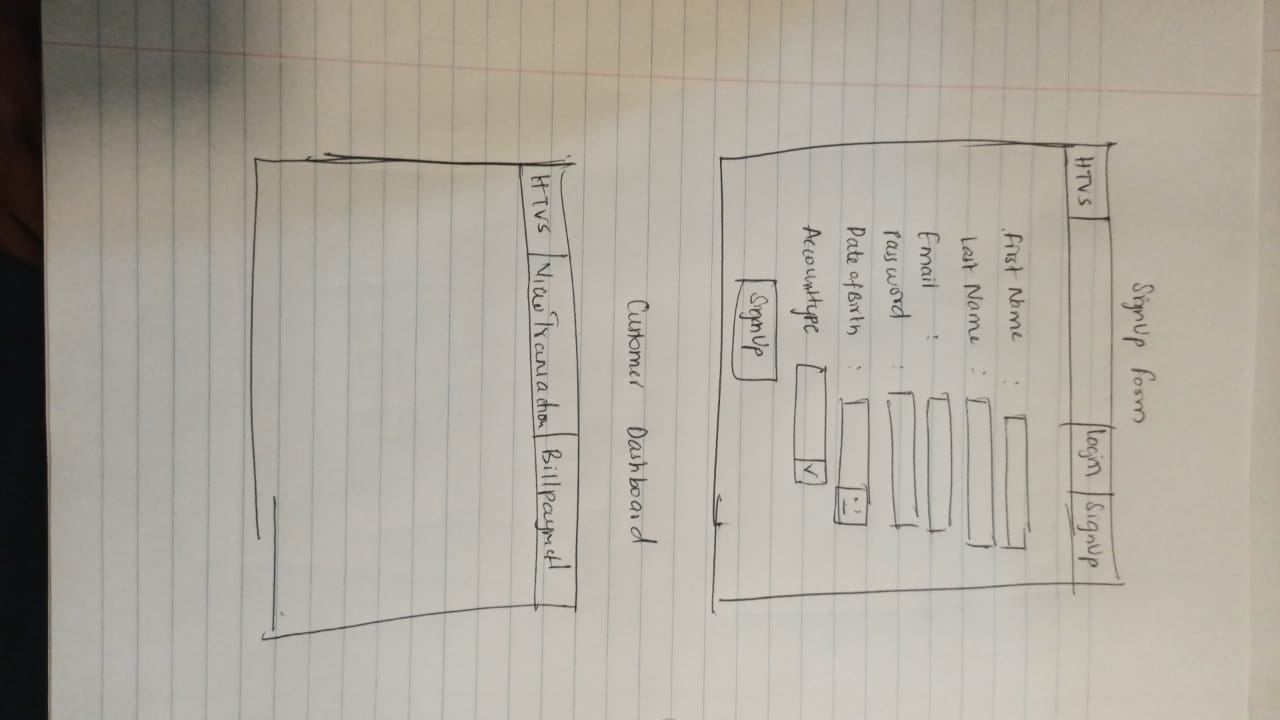 SignUp Form
HTVS login SignUp
First Name :
Last Name :
Email :
Password :
Date of Birth :
Account type
SignUp
Customer Dashboard
HTVS